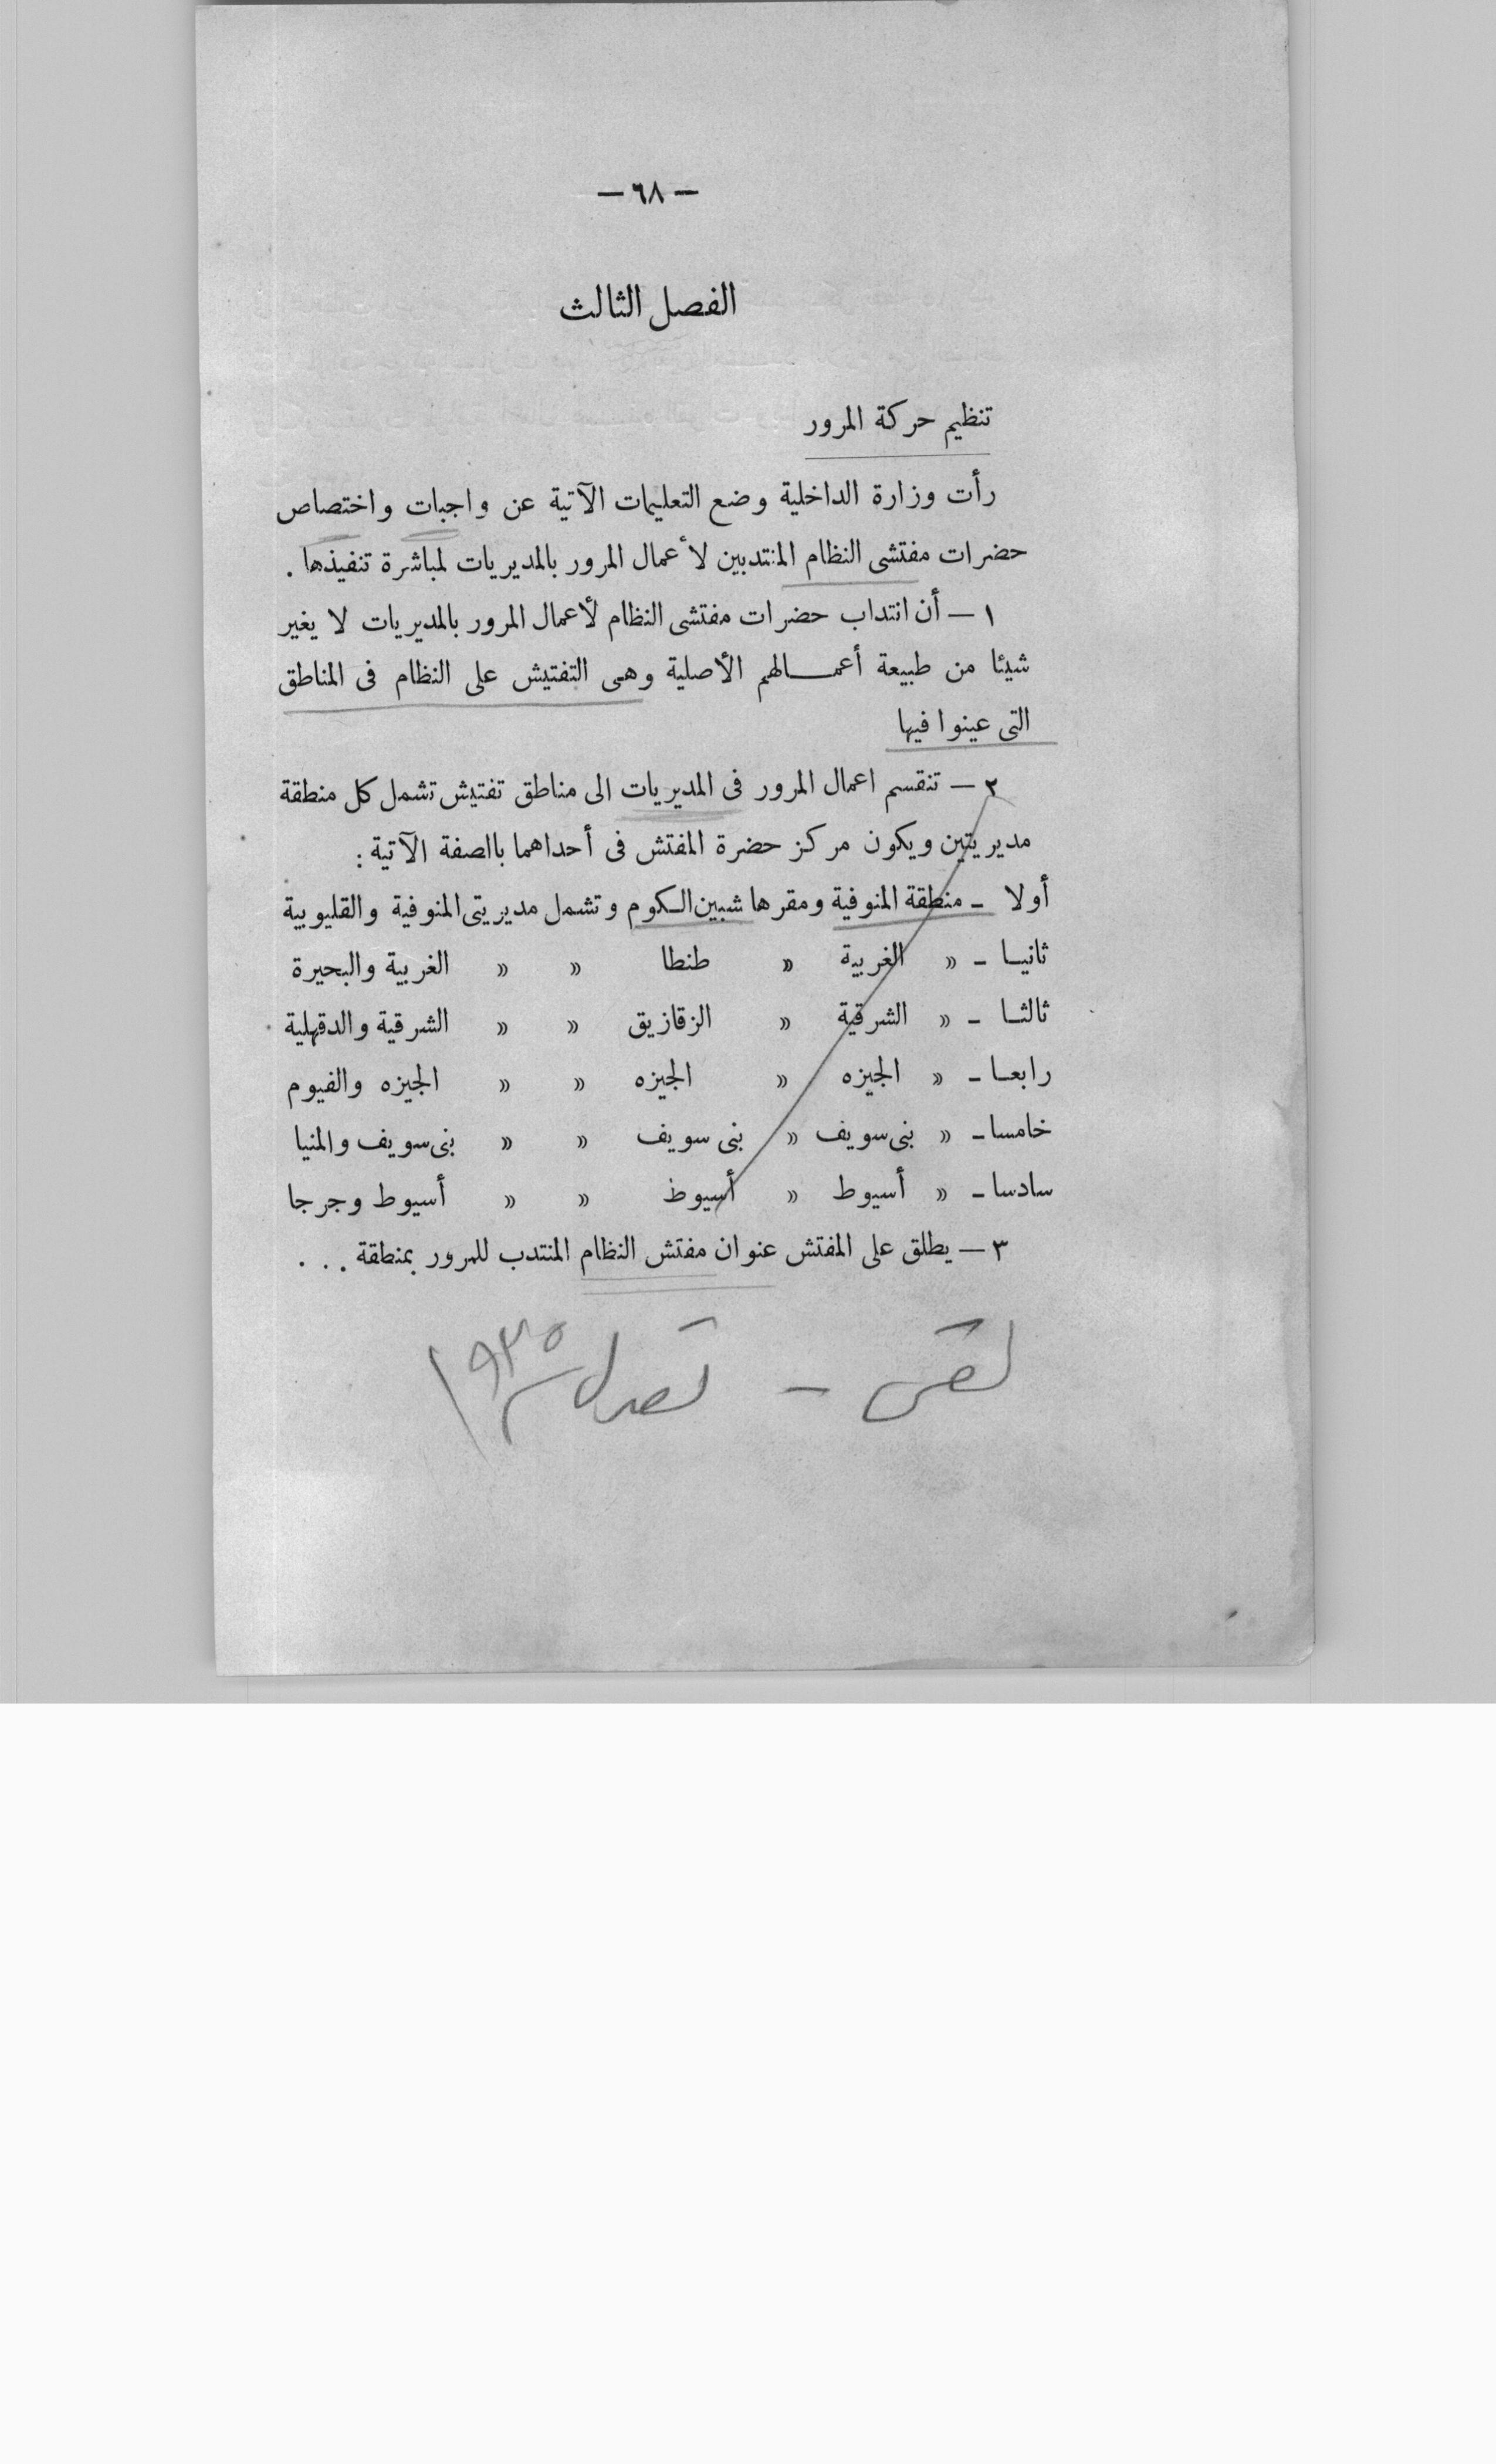 — ٦٨ —
الفصل الثالث
تنظيم حركة المرور
رأت وزارة الداخلية وضع التعليمات الآتية عن واجبات واختصاص
حضرات مفتشى النظام المنتدبين لأعمال المرور بالمديريات لمباشرة تنفيذها .
١ — أن انتداب حضرات مفتشى النظام لأعمال المرور بالمديريات لا يغير
شيئا من طبيعة أعمـــالهم الأصلية وهى التفتيش على النظام فى المناطق
التى عينوا فيها
٢ — تنقسم اعمال المرور فى المديريات الى مناطق تفتيش تشمل كل منطقة
مديريتين ويكون مركز حضرة المفتش فى أحداهما بالصفة الآتية :
أولا – منطقة المنوفية ومقرها شبين الكوم وتشمل مديريتى المنوفية والقليوبية
ثانيا – » الغربية » طنطا » » الغربية والبحيرة
ثالثا – » الشرقية » الزقازيق » » الشرقية والدقهلية
رابعا – » الجيزه » الجيزه » » الجيزه والفيوم
خامسا – » بنى سويف » بنى سويف » » بنى سويف والمنيا
سادسا – » أسيوط » أسيوط » » أسيوط وجرجا
٣ — يطلق على المفتش عنوان مفتش النظام المنتدب للمرور بمنطقة . . .
١٩٣٥